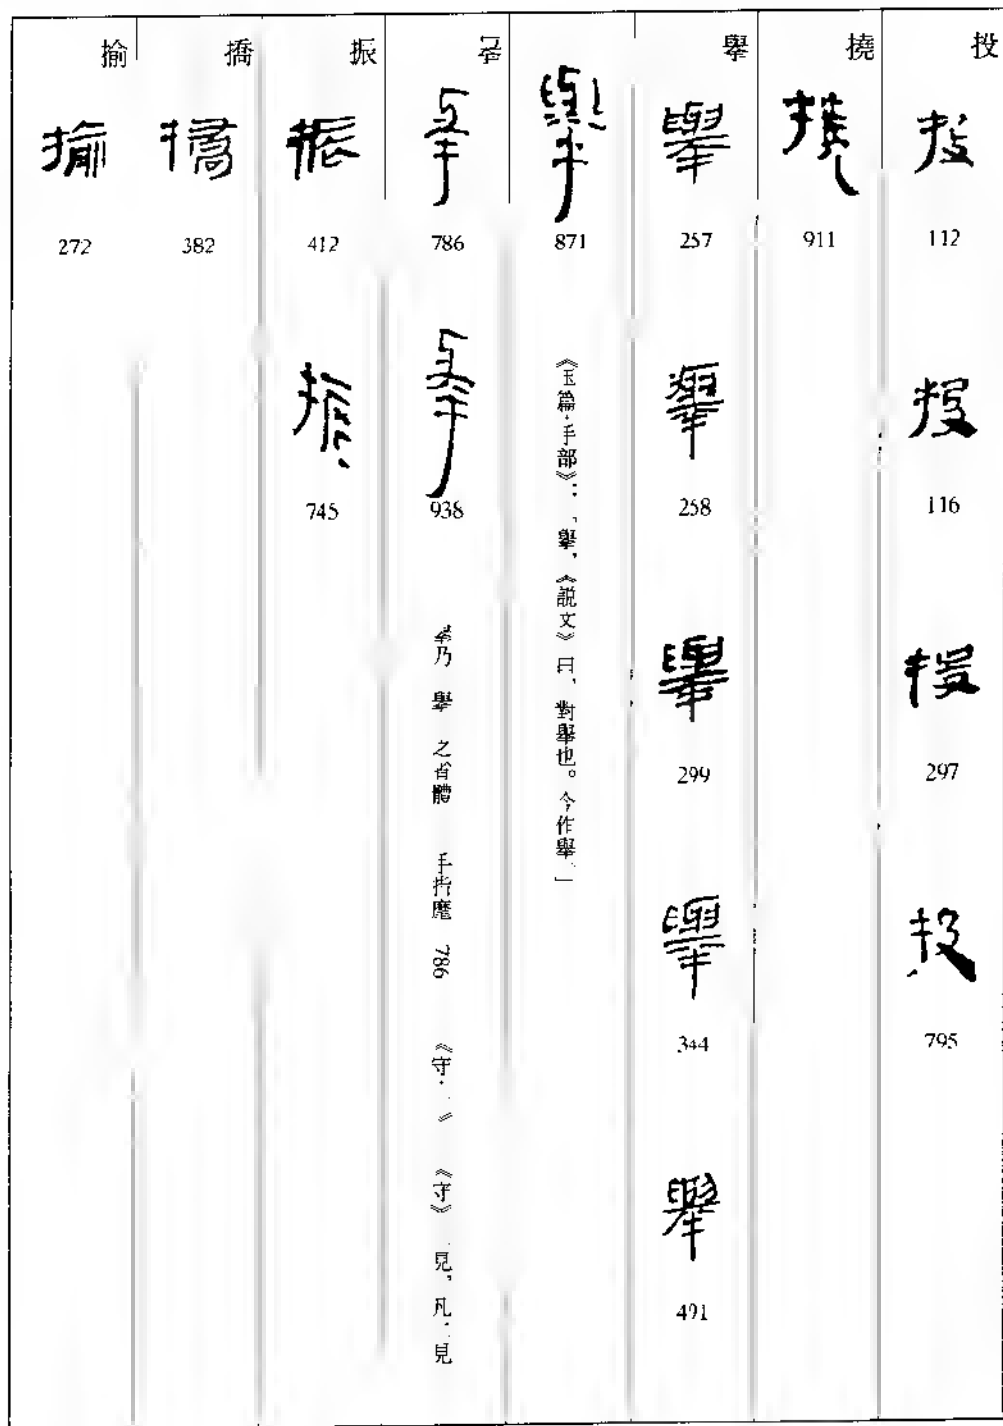 投
112
116
297
795
撓
911
擧
257
258
299
344
491
871
《玉篇·手部》：「擧，《説文》曰，對舉也。今作舉。」
786
938
乃 擧 之省體 手指麾 786 《守· 》 《守》 見，凡 見
振
412
745
撟
382
揄
272